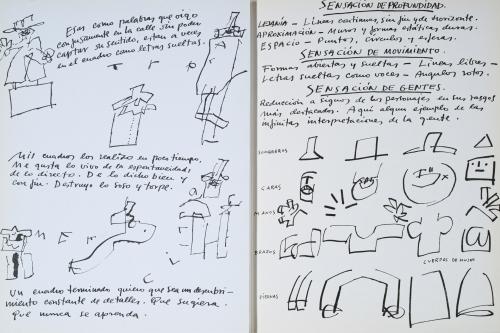 Esas como palabras que oigo
conjuntamente en la calle sin poder
captar su sentido, estan a veces
en el cuadro como letras sueltas.
Mis cuadros los realizo en poco tiempo.
Me gusta lo vivo de la espontaneidad
de lo directo. De lo dicho bien y
con fin. Destruyo lo soso y torpe.
Un cuadro terminado quiero que sea un descubri-
miento constante de detalles. Que sugiera.
Que nunca se aprenda.
SENSACIÓN DE PROFUNDIDAD.
LEJANÍA - Líneas continuas, sin fin y de horizonte.
APROXIMACIÓN - Muros y formas estáticas duras.
ESPACIO - Puntos, círculos y esferas.
SENSACIÓN DE MOVIMIENTO.
Formas abiertas y sueltas - Líneas libres -
Letras sueltas como voces - Angulos rotos.
SENSACIÓN DE GENTES.
Reducción a signos de los personajes en sus rasgos
más destacados. Aquí algun ejemplos de las
infinitas interpretaciones de la gente.
SOMBREROS
CARAS
MANOS
BRAZOS
CUERPOS DE MUJER
PIERNAS